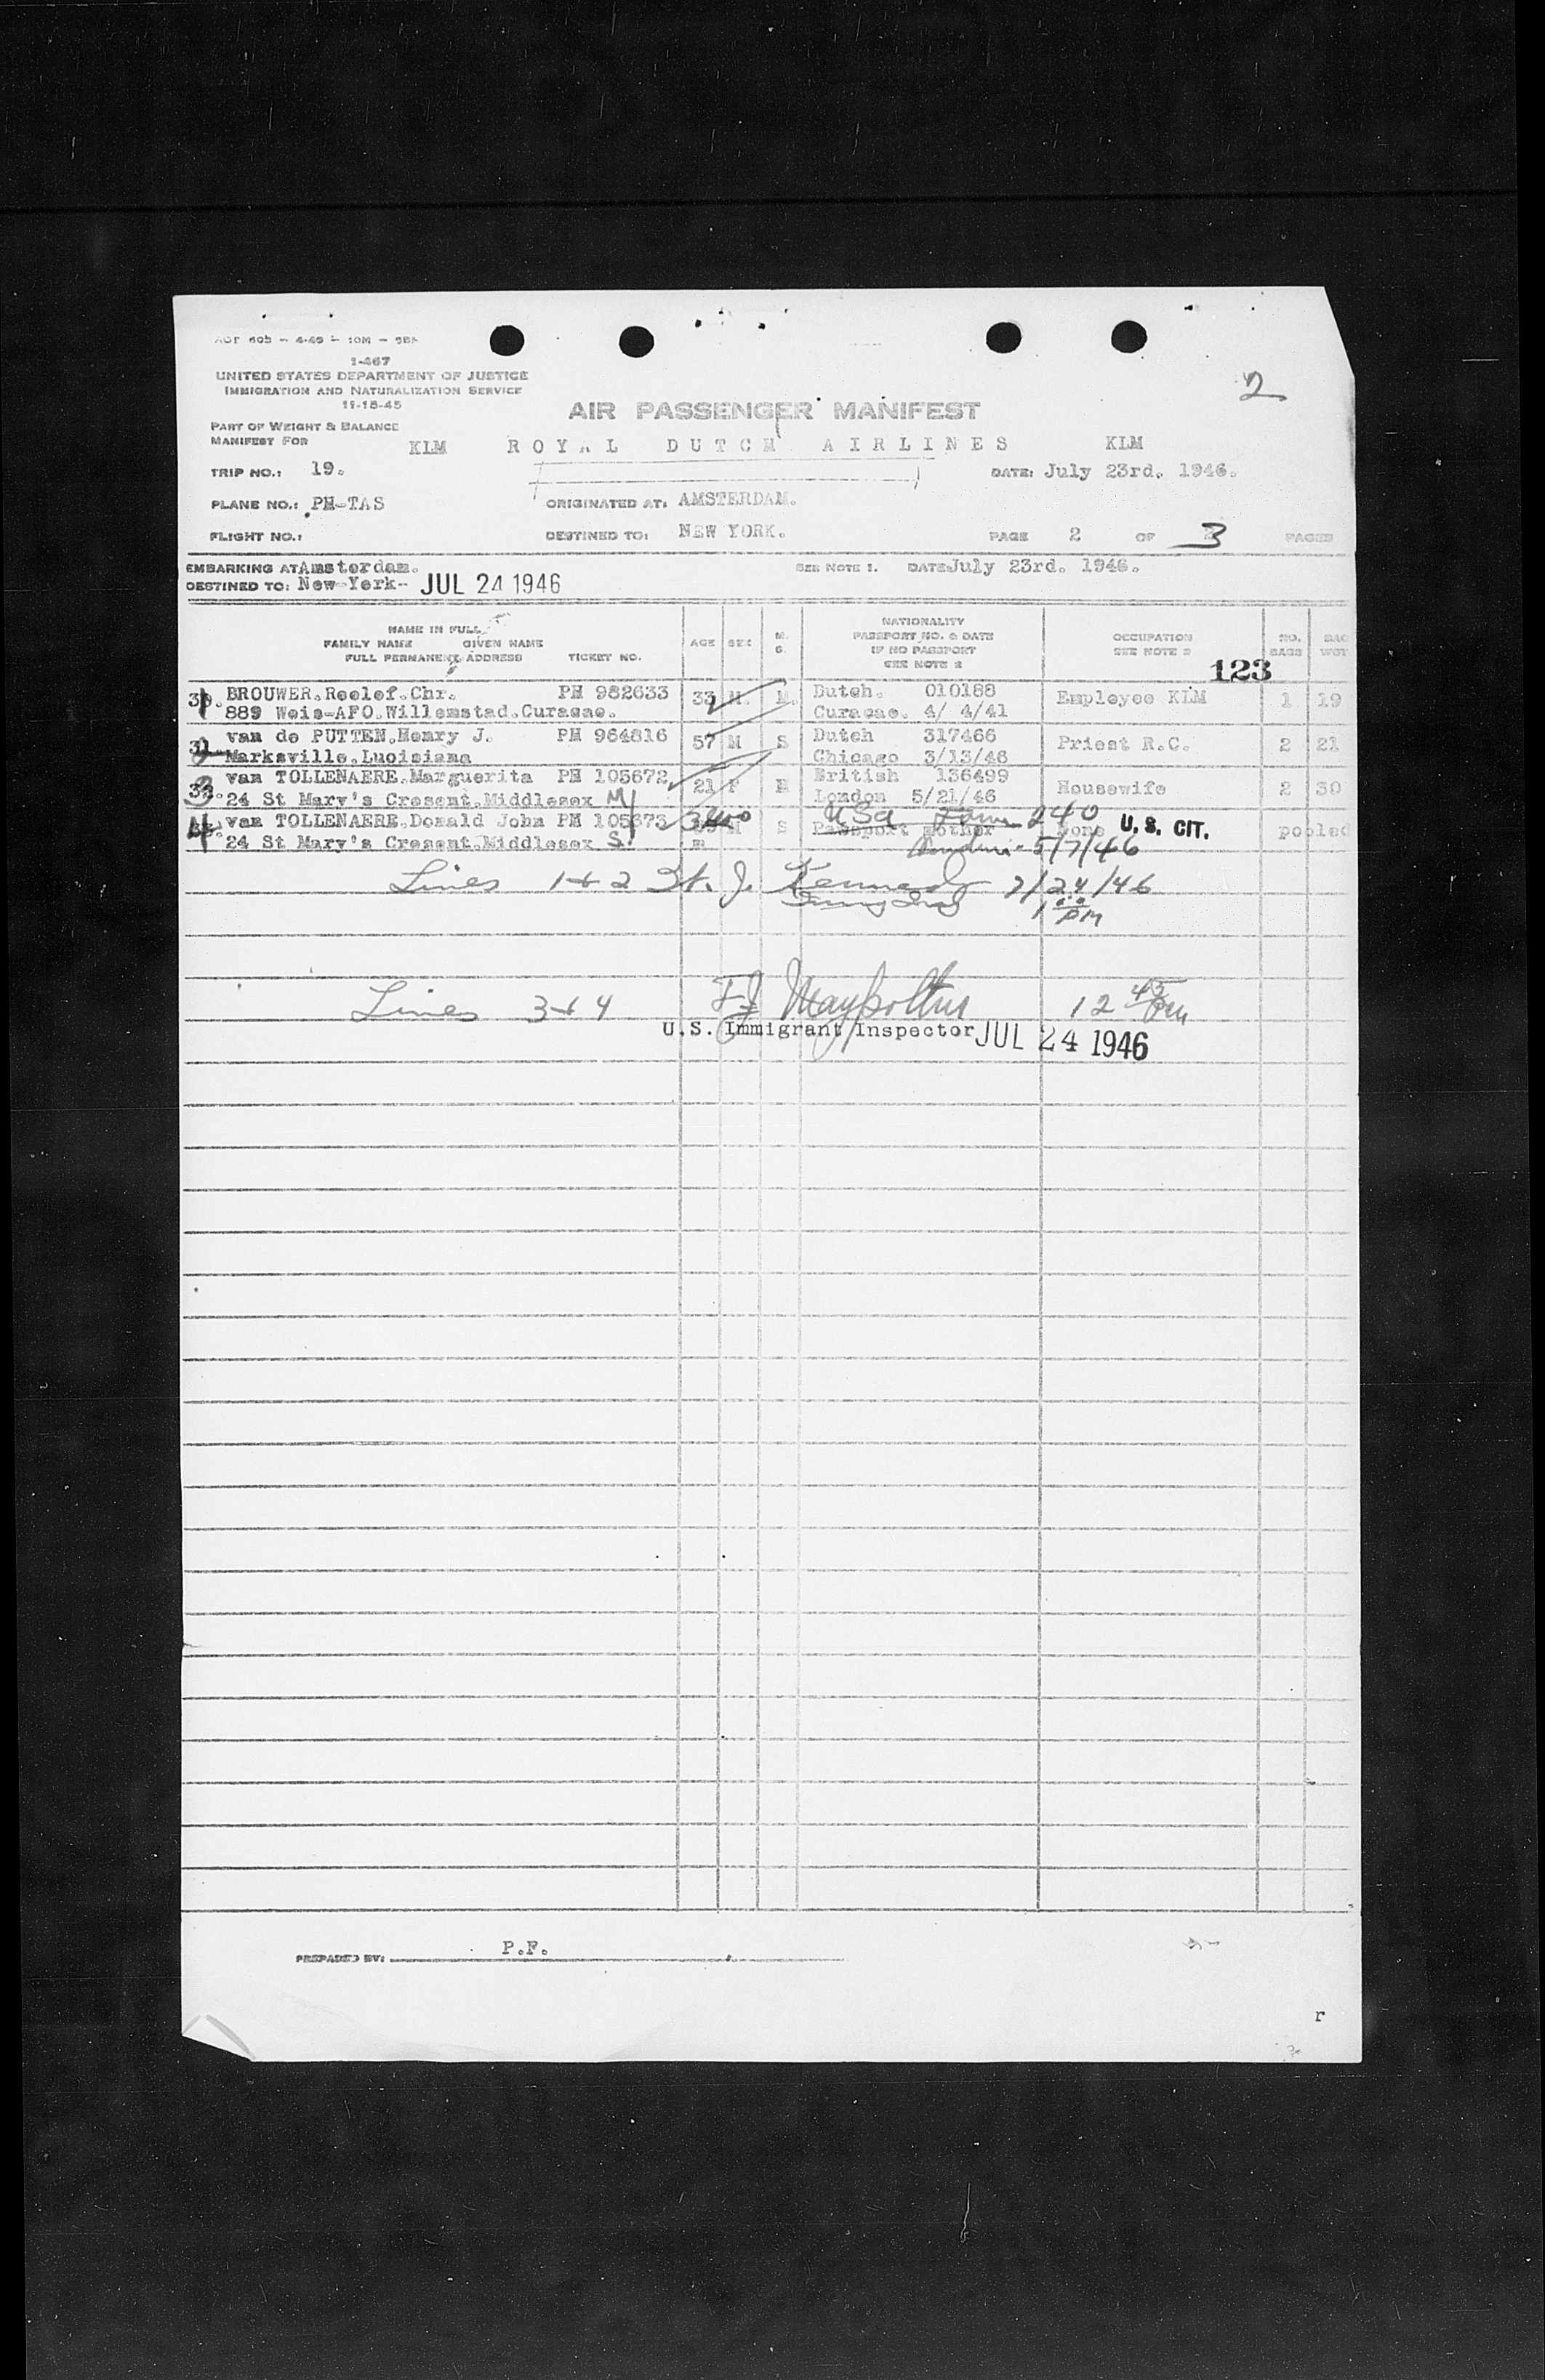 2
I-467
UNITED STATES DEPARTMENT OF JUSTICE
IMMIGRATION AND NATURALIZATION SERVICE
11-15-45
AIR PASSENGER MANIFEST
PART OF WEIGHT & BALANCE
MANIFEST FOR KLM ROYAL DUTCH AIRLINES KLM
TRIP NO.: 19. DATE: July 23rd. 1946.
PLANE NO.: PH-TAS ORIGINATED AT: AMSTERDAM.
FLIGHT NO.: DESTINED TO: NEW YORK. PAGE 2 OF 3 PAGES
EMBARKING AT Amsterdam. SEE NOTE 1. DATE July 23rd. 1946.
DESTINED TO: New York- JUL 24 1946
NAME IN FULL
FAMILY NAME GIVEN NAME
FULL PERMANENT ADDRESS TICKET NO. AGE SEX M. S. NATIONALITY PASSPORT NO. & DATE IF NO PASSPORT SEE NOTE 2 OCCUPATION SEE NOTE 2 NO. BAGS BAG WGT
123
BROUWER.Roelof.Chr. PH 982633 33 M. M. Dutch. 010188 Employee KLM 1 19
889 Weis-AFO.Willemstad.Curacao. Curacao. 4/ 4/41
van de PUTTEN.Henry J. PH 964816 57 M S Dutch 317466 Priest R.C. 2 21
Marksville.Luoisiana Chicago 3/13/46
van TOLLENAERE.Marguerita PH 105672 21 F British 136499 Housewife 2 30
24 St Mary's Cresent.Middlesex M London 5/21/46
van TOLLENAERE.Donald John PH 105673 M S USA 240 None U.S. CIT. pooled
24 St Mary's Cresent.Middlesex S Passport mother 5/7/46
Lines 1+2 J. Kennedy 7/24/46
1 00 PM
Lines 3+4 12 45 Pm
U.S. Immigrant Inspector JUL 24 1946
PREPARED BY: P.F.
r